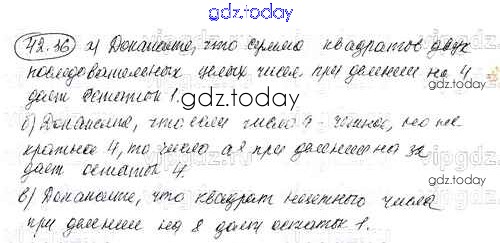 gdz.today
42.36 а) Докажите, что сумма квадратов двух
последовательных целых чисел при делении на 4
даёт остаток 1.
gdz.today
б) Докажите, что если число - чётное, но не
кратное 4, то число при делении на 32
gdz.today
даёт остаток 4.
в) Докажите, что квадрат нечётного числа
при делении на 8 даёт остаток 1.
gdz.today